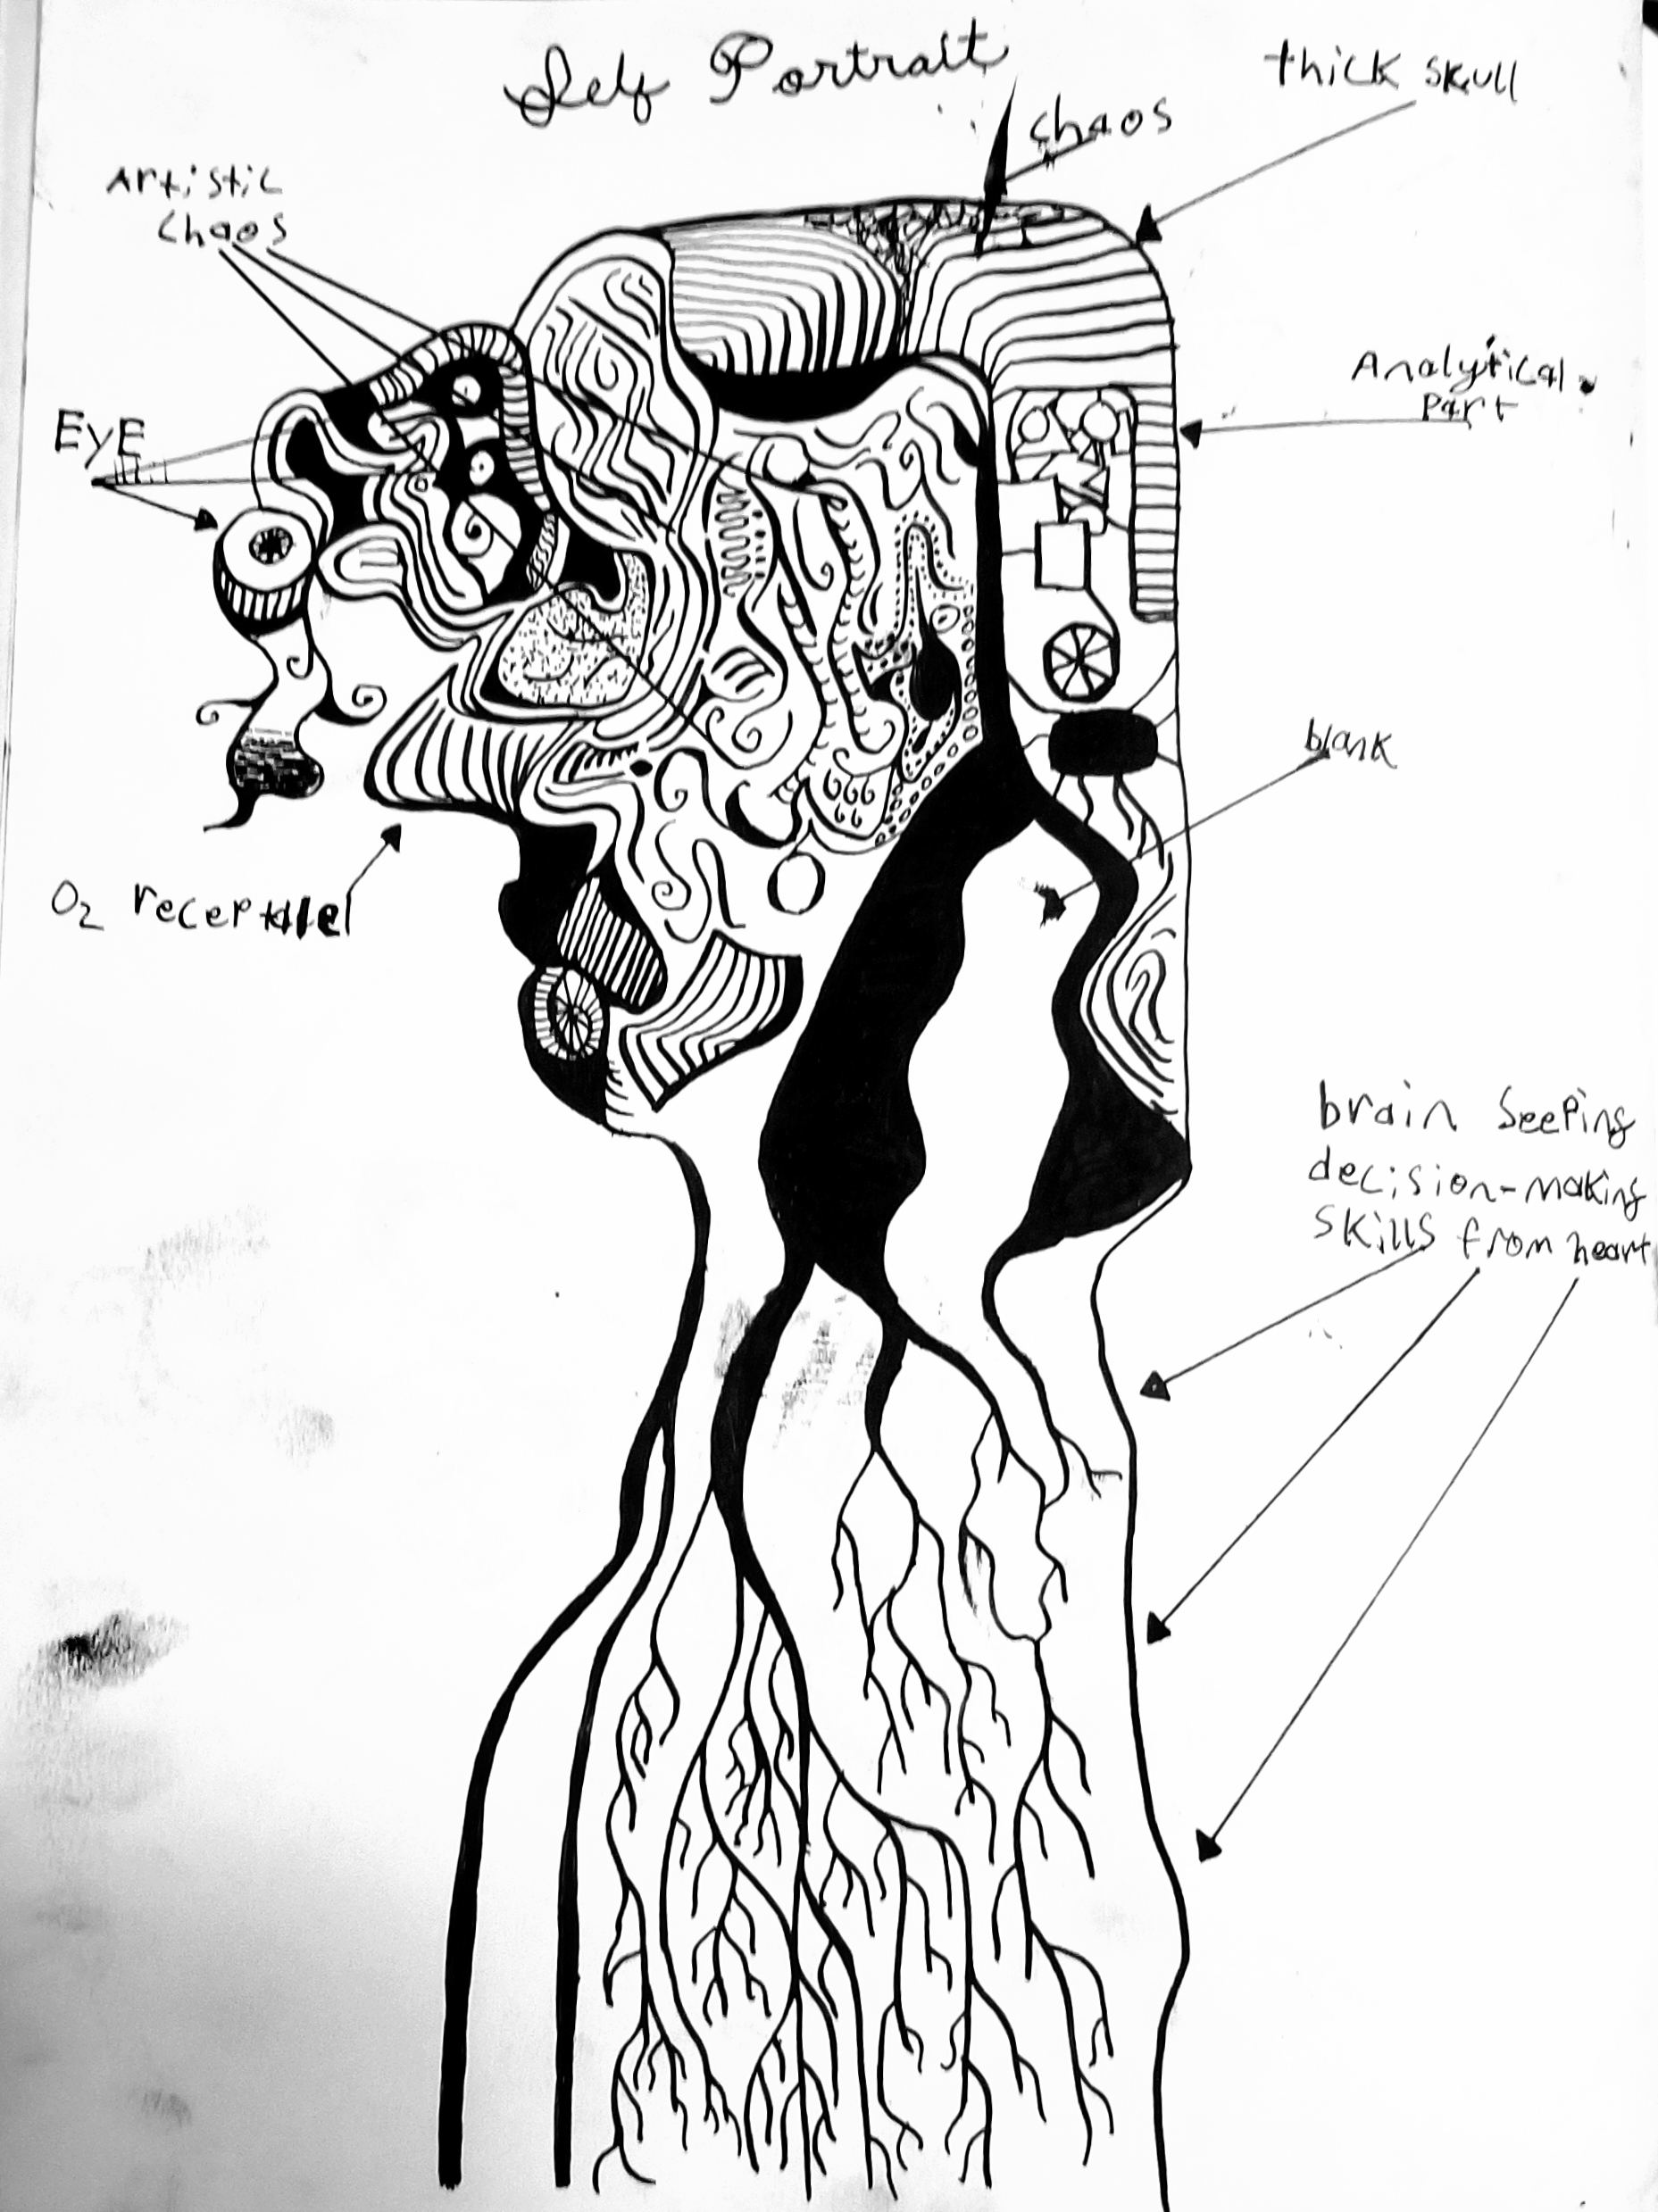 Self Portrait
chaos
thick skull
Artistic
Chaos
EyE
Analytical
part
blank
O₂
brain seeping
decision-making
skills from heart